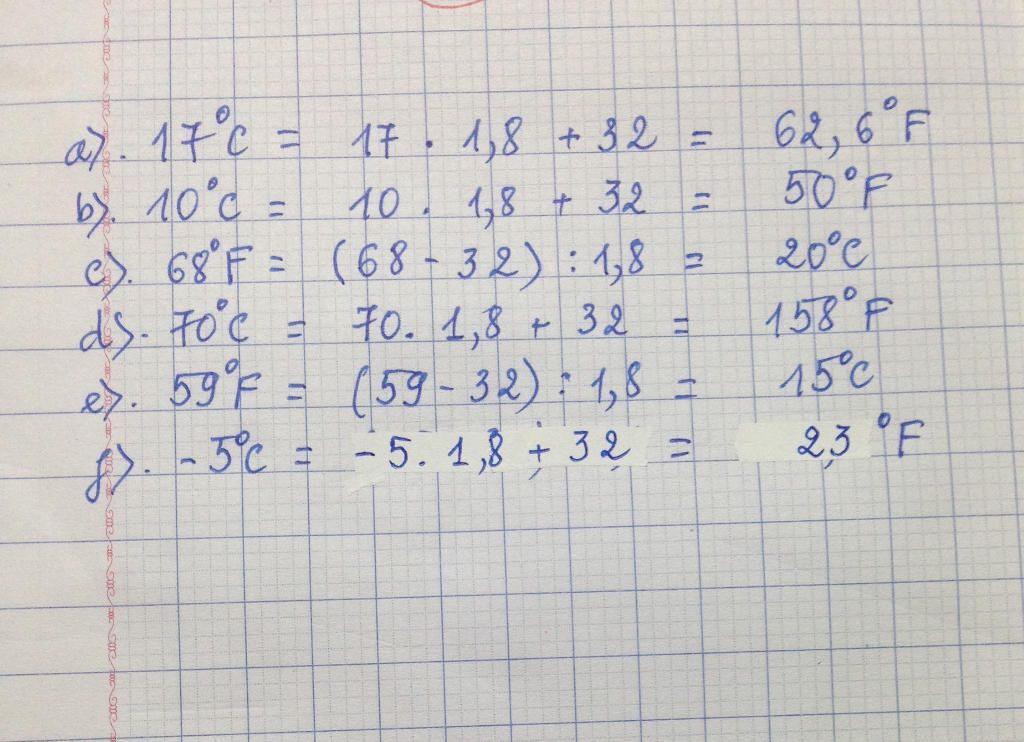 a). 17°C = 17 . 1,8 + 32 = 62,6°F
b). 10°C = 10 . 1,8 + 32 = 50°F
c). 68°F = (68 - 32) : 1,8 = 20°C
d). 70°C = 70. 1,8 + 32 = 158°F
e). 59°F = (59 - 32) : 1,8 = 15°C
f). -5°C = -5. 1,8 + 32 = 23 °F